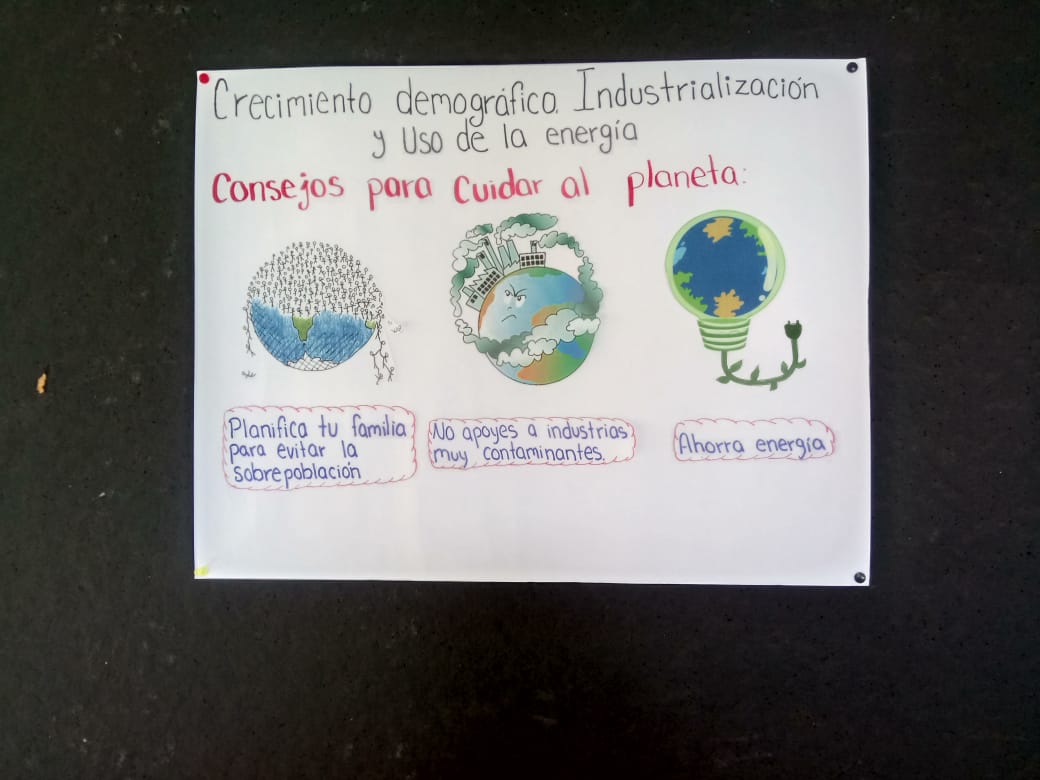 Crecimiento demográfico. Industrialización
y Uso de la energía
Consejos para Cuidar al planeta:
Planifica tu familia
para evitar la
sobrepoblación
No apoyes a industrias
muy contaminantes.
Ahorra energía